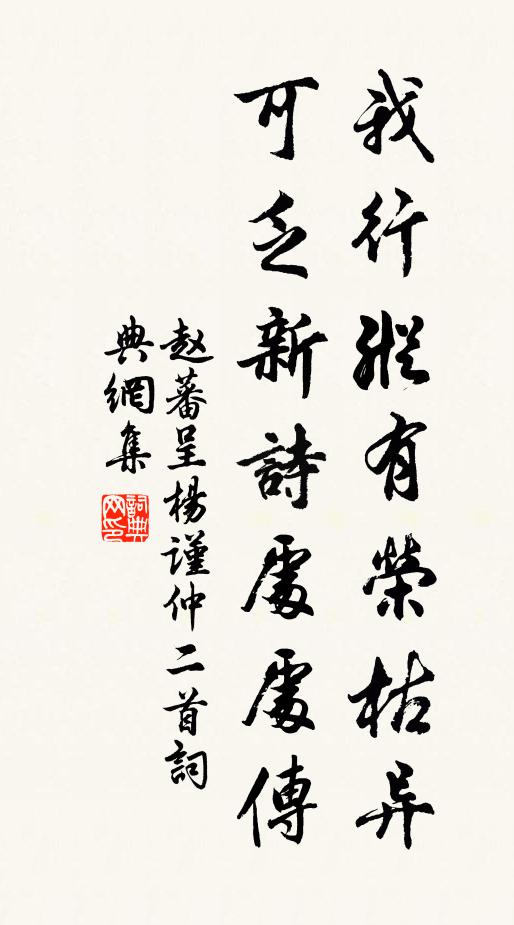 我行縱有榮枯异
可乏新詩處處傳
赵蕃呈楊謹仲二首詞
典網集
詞典网印